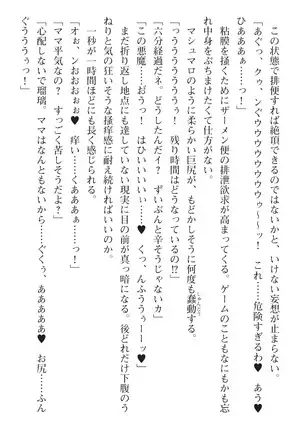 この状態で排便すれば絶頂できるのではないかと、いけない妄想が止まらない。
「あぐっ、クゥ、ンぐウウウウウウウ～～ッ！　これ……危険すぎるわ♥　あう♥」
粘膜を掻くためにザーメン便の排泄欲求が高まってくる。ゲームのこともなにもかも忘
れ中身をぶちまけたくて仕方がない。
マシュマロのように柔らかい巨尻が、もどかしそうに何度も蠢動する。
「っううううううう！　残り時間はどうなっているの⁉」
「六分経過だネ。どうしたんだイ？　ずいぶんと辛そうじゃないカ」
「この悪魔……おうっ！　はひいいいい♥　くっ、んふううぅーーッ♥」
まだ折り返し地点にも達していない現実に目の前が真っ暗になる。後どれだけ下腹のう
ねりと気の狂いそうな掻痒感に耐え続ければいいのか。
一秒が一時間ほどにも長く感じられる。
「オぉ、ンおおおぉ♥　痒い……くあああぁ……っ！」
「ママ平気なの？　すっごく苦しそうだよ？」
「心配しないで瑠璃。ママはなんともないから……ぐくぅ、ああああぁ♥　お尻……ふん
ぐうううぅっ！」